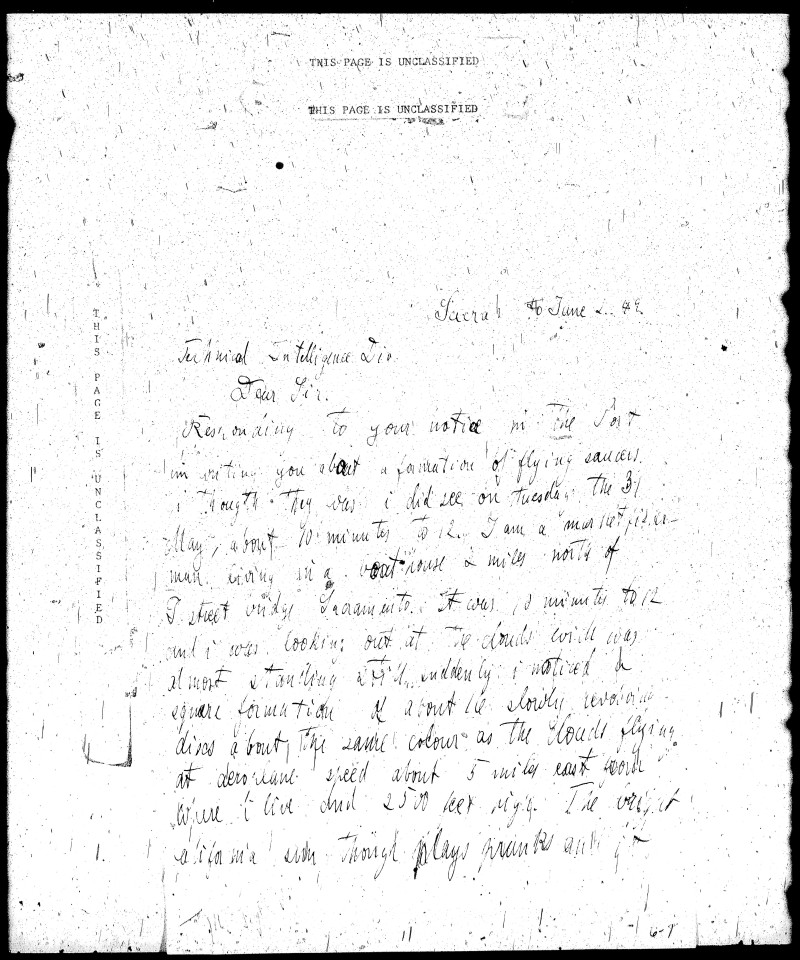 THIS PAGE IS UNCLASSIFIED
THIS PAGE IS UNCLASSIFIED
THIS PAGE IS UNCLASSIFIED
June 2. 49.
Technical Intelligence Div.
Dear Sir.
Responding to your notice in the Post
im writing you about a formation of flying saucers.
i thougth they was i did see on tuesday the 31
May, about 10 minutes to 12. I am a market fisher-
man living in a boat house 2 miles north of
I street bridge Sacramento. It was 10 minutes to 12
and i was looking out at the clouds was
almost standing still, suddenly i noticed a
square formation of about slowly revolving
discs about the same colour as the clouds flying
at aeroplane speed about 5 miles east from
where i live and 2500 feet The bright
california sun though plays pranks and
11
6-7